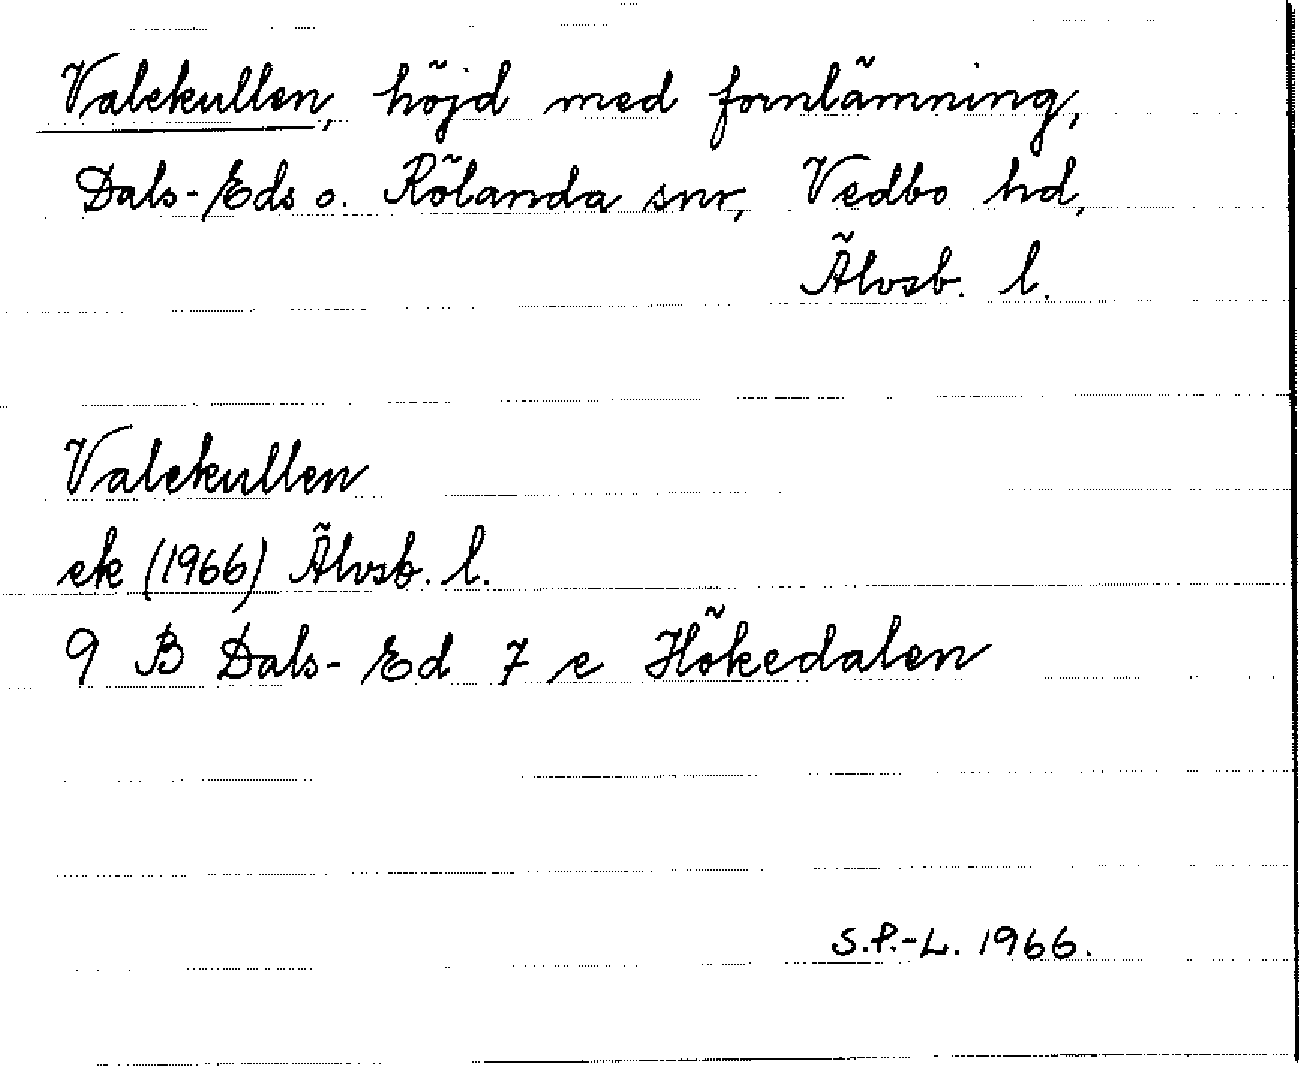 Valekullen, höjd med fornlämning,
Dals-Eds o. Rölanda snr, Vedbo hd,
Älvsb. l.
Valekullen
ek (1966) Älvsb. l.
9 B Dals-Ed 7 e Hökedalen
S.P.-L. 1966.